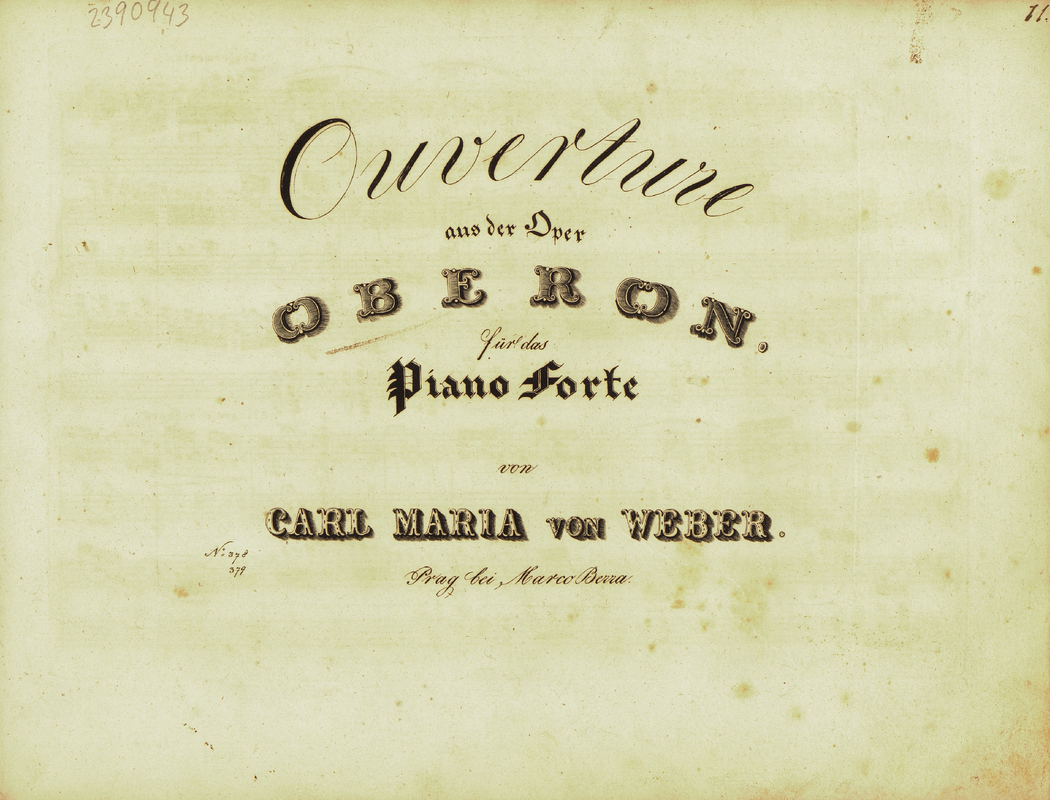 2390943
71.
Ouverture
aus der Oper
OBERON.
für das
Piano Forte
von
CARL MARIA VON WEBER.
No: 378
379
Prag bei Marco Berra.